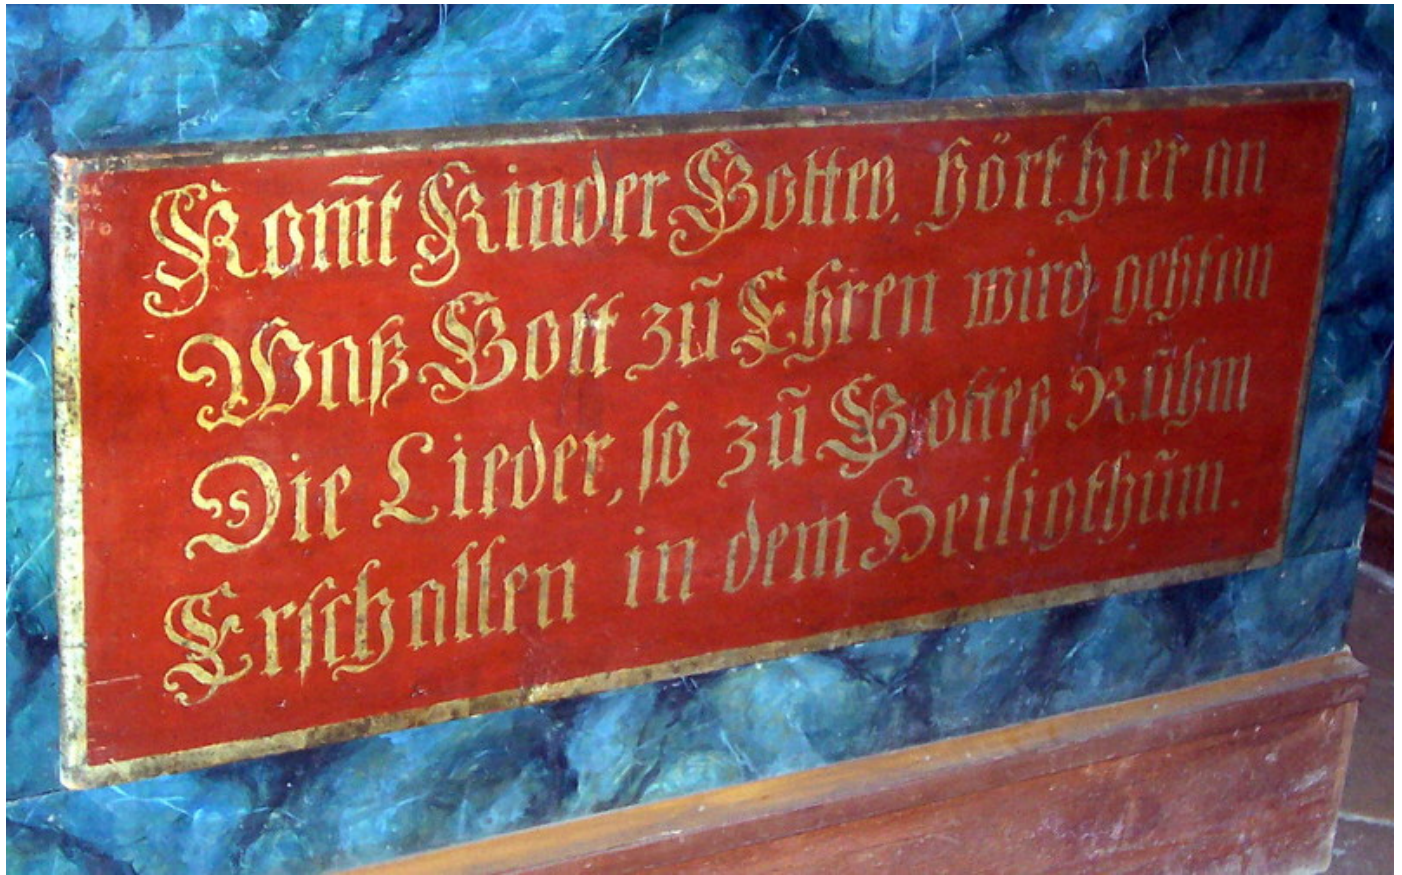 Kom̄t Kinder Gottes, hört hier an
Waß Gott zū Ehren wird gehtan
Die Lieder, so zū Gottes Rūhm
Erschallen in dem Heiligthūm.